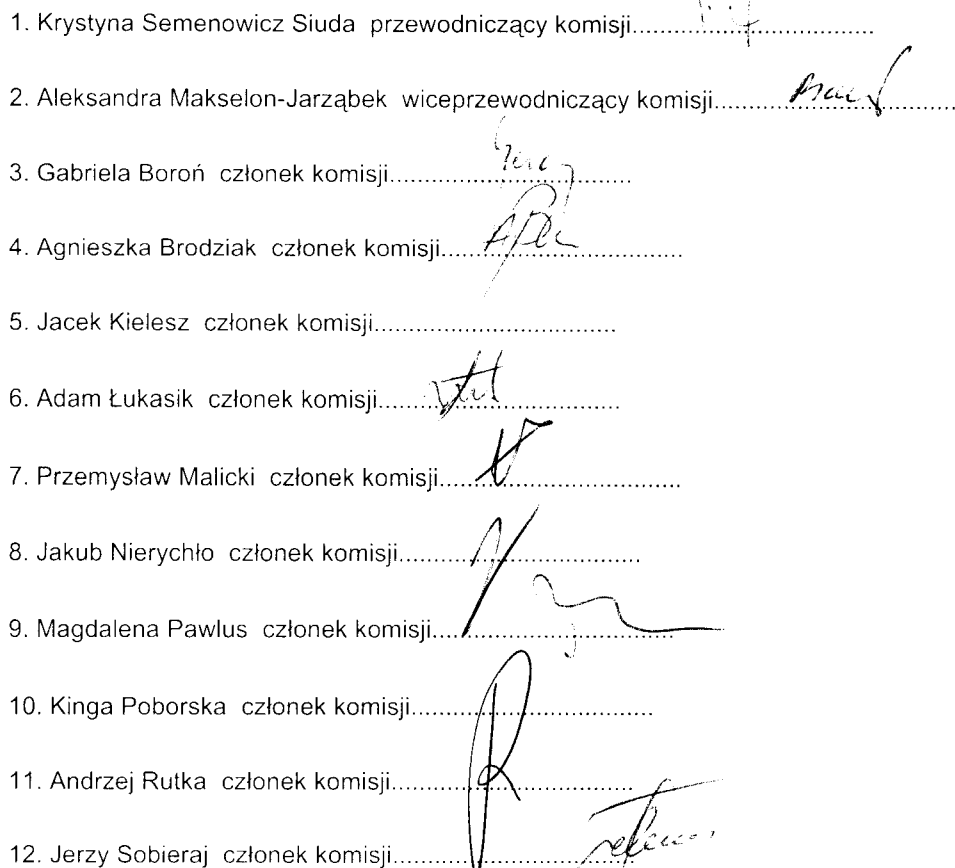 1. Krystyna Semenowicz Siuda przewodniczący komisji..................................
2. Aleksandra Makselon-Jarząbek wiceprzewodniczący komisji..................................
3. Gabriela Boroń członek komisji..................................
4. Agnieszka Brodziak członek komisji..................................
5. Jacek Kielesz członek komisji..................................
6. Adam Łukasik członek komisji..................................
7. Przemysław Malicki członek komisji..................................
8. Jakub Nierychło członek komisji..................................
9. Magdalena Pawlus członek komisji..................................
10. Kinga Poborska członek komisji..................................
11. Andrzej Rutka członek komisji..................................
12. Jerzy Sobieraj członek komisji..................................